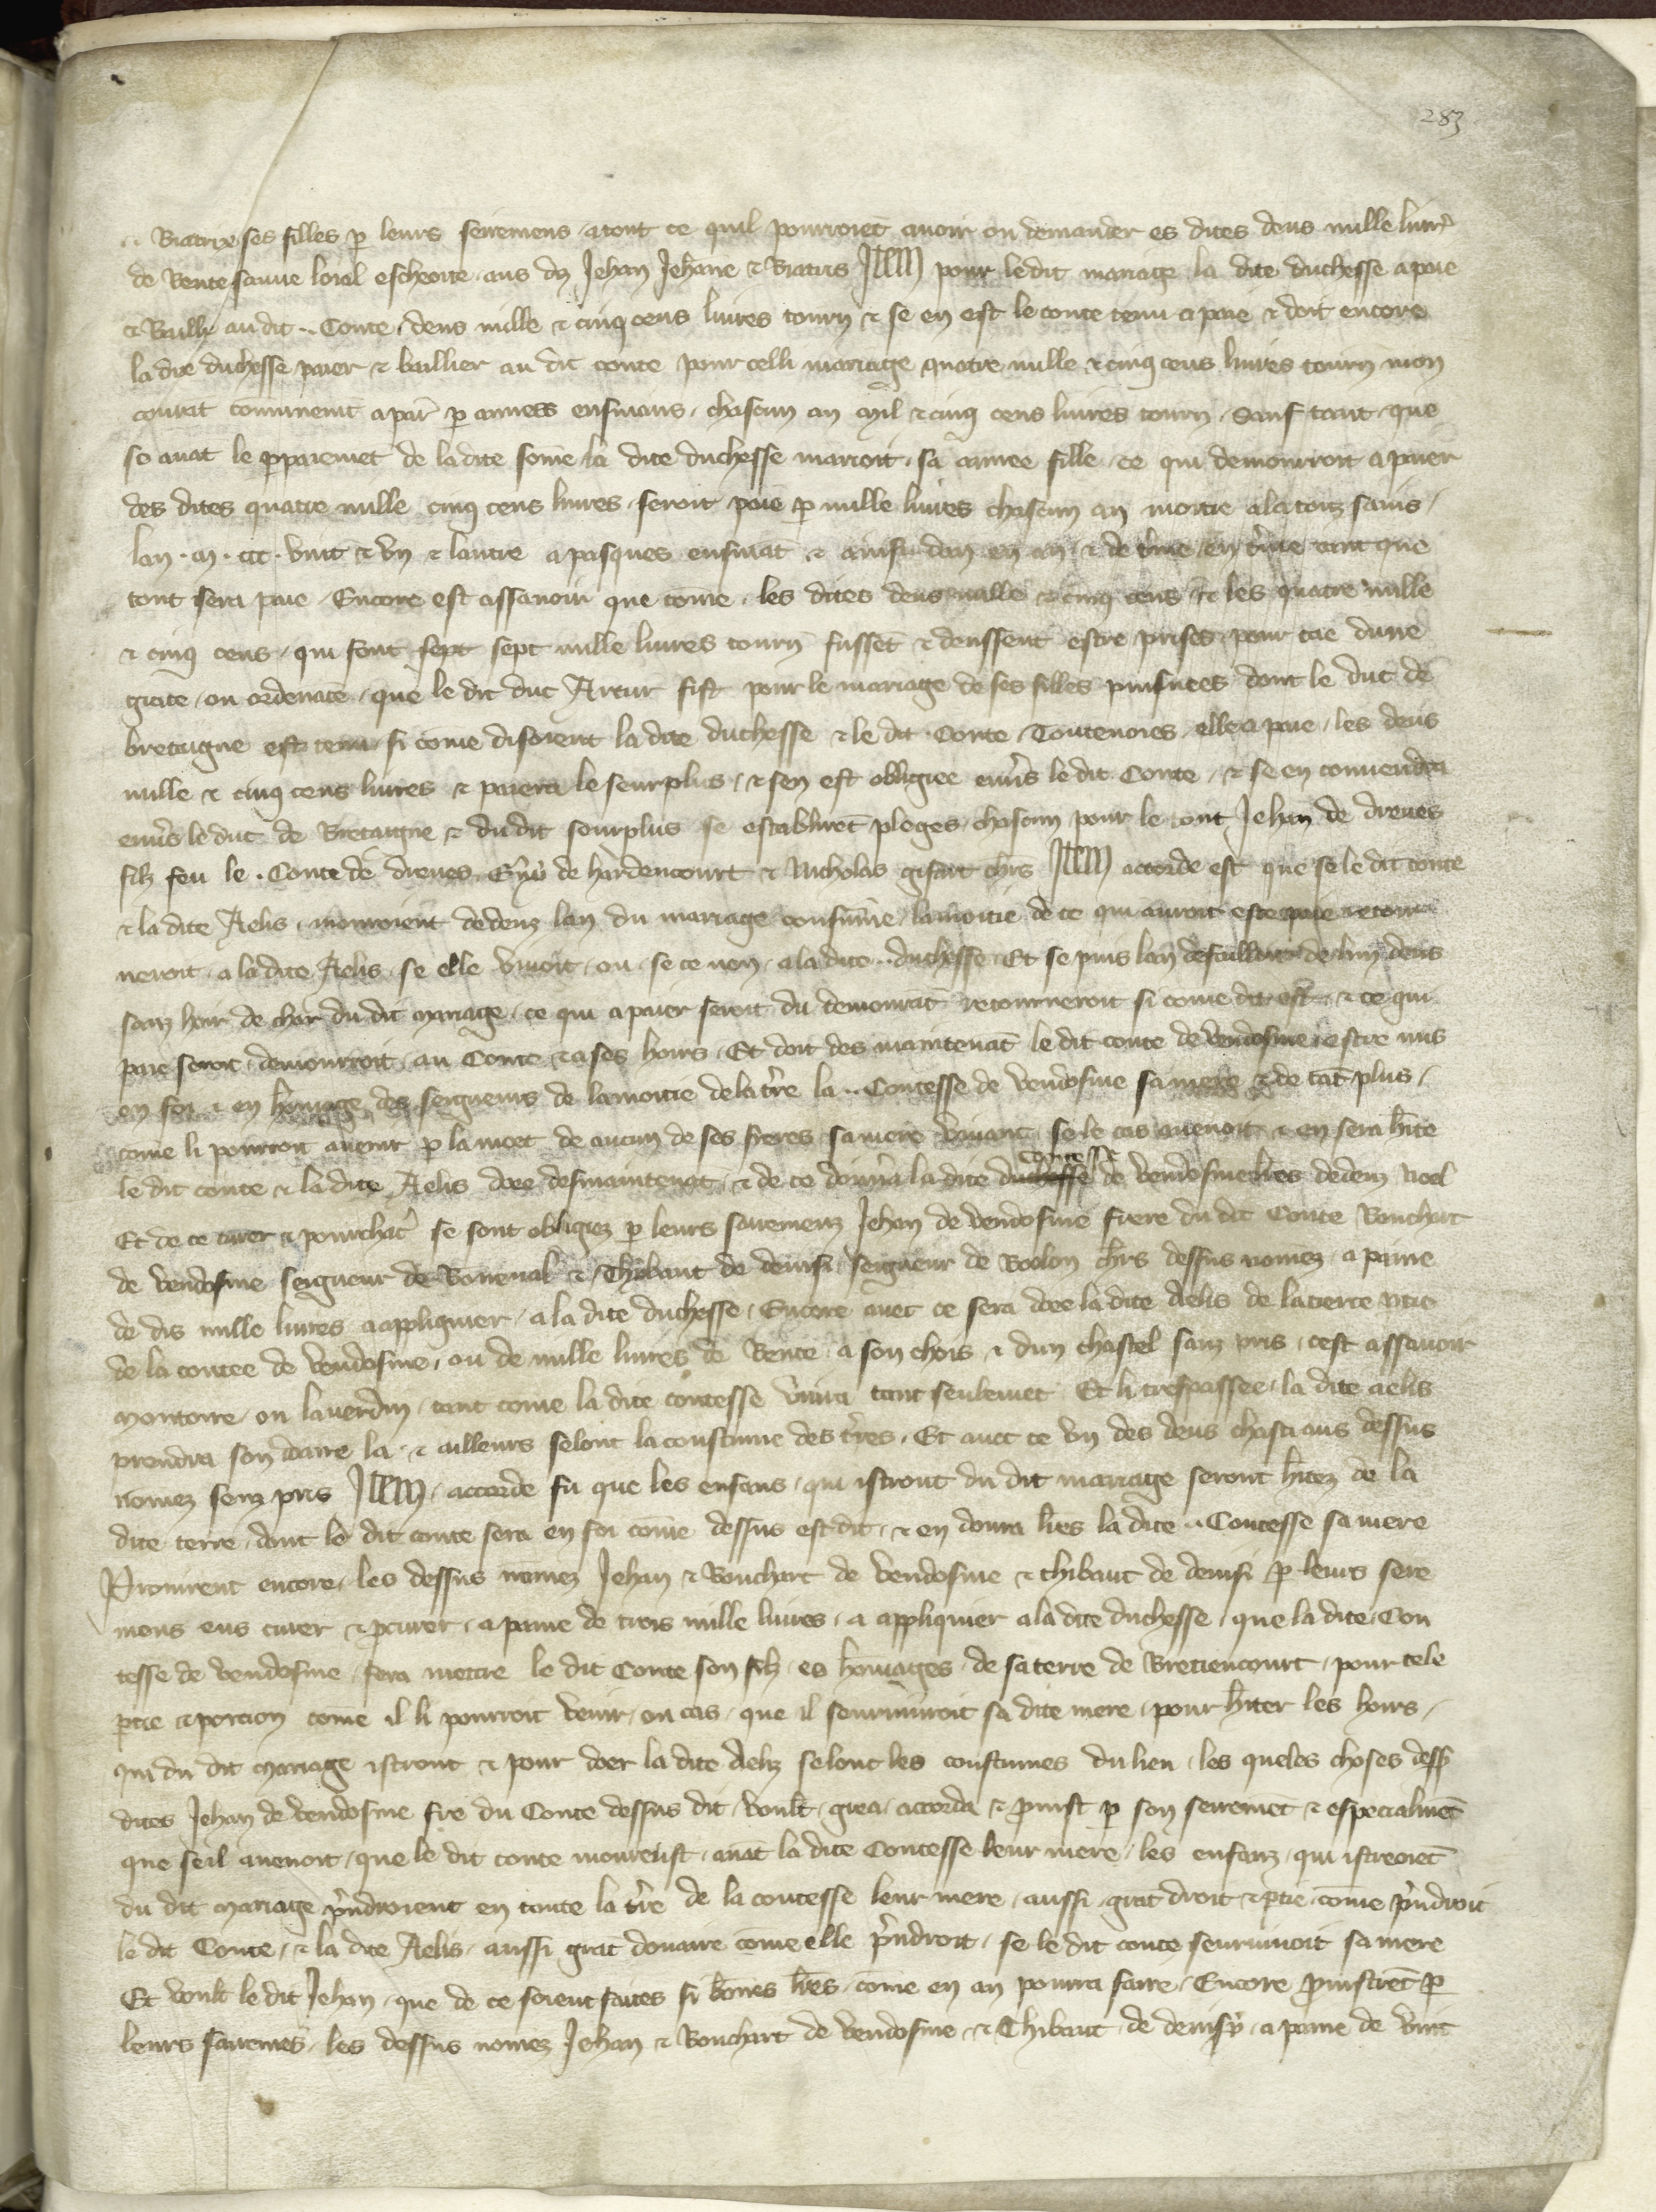 283
Biatrixe ses filles p leurs seiremens atout ce quil pourroiēt auoir ou demander es dites deus mille liur̄
de Rente sauue loial escheoite aus dʒ Jehan Jehane & Biatris Item pour ledit mariage la dite duchesse a paie
& Baillie audit .. Conte deus mille & cinq cens liures tourn̄ & se en est le conte tenu a paie & doit encore
ladite duchesse paier & baillier au dit conte pour celli mariage quatre mille & cinq cens liures tourn̄ mon
 a pār p ensiuans chascun an mil & cinq cens liures tourn̄ Sauf tant que
se auāt le ꝑpaiemēt de ladite sōme la dite duchesse marioit sa ainnee fille ce qui demourroit a paier
des dites quatre mille cinq cens liures seroit paie p mille liures chascun an moitie ala touz sains
lan . m . ccc . vint & vn & lautre a pasques ensiuāt & ainsi dan en an & de t̄me en t̄me tant que
tout sera paie Encore est assauoir que cōme les dites deus mille & cinq cens & les quatre mille
& cinq cens qui font sept sept mille liures tourn̄ fussēt & deussent estre prises pour cāe dune
grace ou ordenāce que le dit duc Artur fist pour le mariage de ses filles puisnees dont le duc de
bretaigne est tenu si cōme disoient la dite duchesse & le dit Conte Toutenoies elle a paie les deus
mille & cinq cens liures & paiera le seurplus & sen est obligiee enūs le dit Conte & se en conuendra
enūs le duc de Bretaigne & du dit sourplus se establirēt pleges chascun pour le tout Jehan de dreues
filz feu le . Conte de dreues de hardencourt & Nicholas gifart ch̄rs Item accorde est que se le dit conte
& la dite Aelis mouroient dedenz lan du mariage lamoitie de ce qui auroit este paie retour
neroit a la dite Aelis se elle viuoit ou se ce non a la dite .. duchesse Et se puis lan defailloit de lun deus
sanz hoir de char du dit mariage ce qui a paier seroit du demourāt retourneroit si cōme dit est & ce qui
paie seroit demourroit au Conte & a ses hoirs Et doit des maintenāt le dit conte de vendosme estre mis
en foi & en hōmage des seigneurs de lamoitie dela t̄re la .. Contesse de vendosme sa mere & de tāt plus
cōme li pourroit auenir p la mort de aucun de ses freres sa mere viuant se le cas auenoit & en sera h̄ite
le dit conte & la dite Aelis doee desmaintenāt & de ce donra la dite duchesse contesse de vendosme l̄res dedenz noel
Et de ce curer & pourchac̄ se sont obligiez p leurs sairemenz Jehan de vendosme frere du dit Conte Bouchart
de vendosme seigneur de Boneual & Thibaut de denisi seigneur de Boolon ch̄rs dessus nōmez a paine
de dis mille liures a appliquier a la dite duchesse Encore auec ce sera doee la dite Aelis de la tierce ptie
de la contee de vendosme ou de mille liures de Rente a son chois & dun chastel sanz pris cest assauoir
montoire ou lauerdin tant cōme la dite contesse viura tant seulemēt Et li trespassee la dite aelis
prendra son doaire la & ailleurs selont la coustume des t̄res Et auec ce vn des deus chastiaus dessus
nōmez senz pris Item accorde fu que les enfans qui istront du dit mariage seront h̄itez de la
dite terre dont le dit conte sera en foi cōme dessus est dit & en donra l̄res la dite .. Contesse sa mere
Promirent encore les dessus nōmez Jehan & Bouchart de vendosme & thibaut de denisi p leurs sere
mens eus curer & pcurer a paine de trois mille liures a appliquier a la dite duchesse que la dite Con
tesse de vendosme fera mettre le dit Conte son filz es hōmages de sa terre de Bretiencourt pour tele
ptie & porcion cōme il li pourroit venir ou cas que il seuruiuroit sa dite mere pour h̄iter les hoirs
qui du dit mariage istront & pour doer la dite Aeliz selont les coustumes du lieu les queles choses dess̄
dites Jehan de vendosme fre du Conte dessus dit voult grea accorda & pmist p son seiremēt & especialmēt
que se il auenoit que le dit conte mourust auāt la dite Contesse leur mere les enfanz qui istroiēt
du dit mariage p̄ndroient en toute la t̄re de la contesse leur mere aussi grāt droit & ptie cōme p̄ndroit
le dit Conte & la dite Aelis aussi grāt douaire cōme elle p̄ndroit se le dit conte seuruiuoit sa mere
Et voult le dit Jehan que de ce soient faites si bōnes l̄res cōme en an pourra faire Encore pmistrēt p
leurs sairemēs les dessus nōmez Jehan & Bouchart de vendosme & Thibaut de denisy a paine de vint